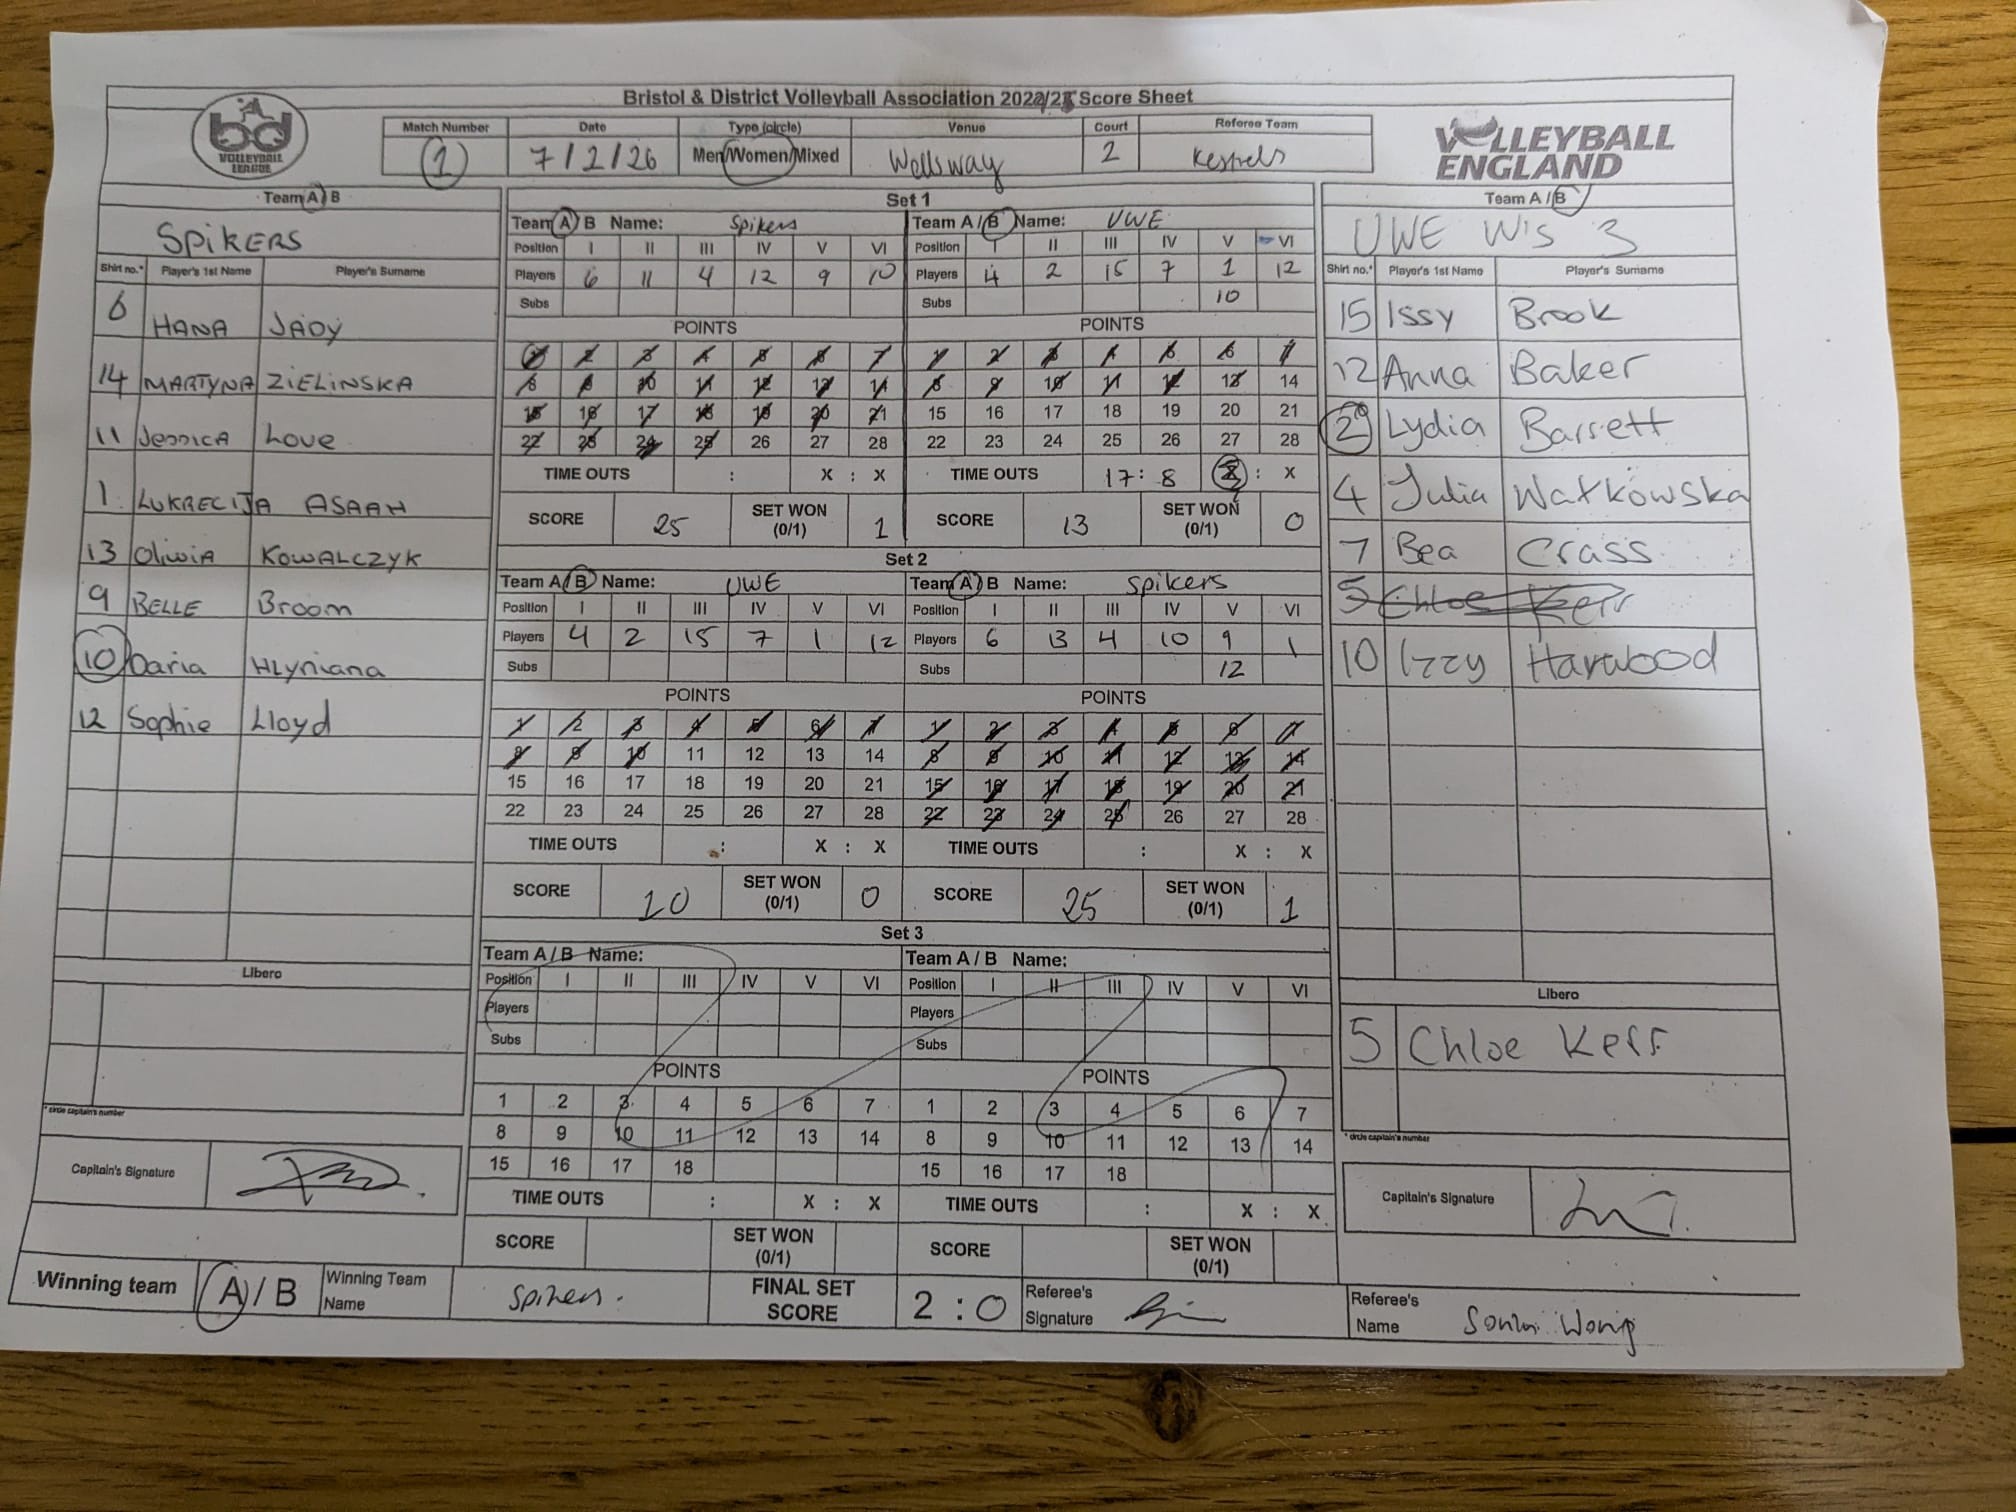 Bristol & District Volleyball Association Score Sheet
bd
VOLLEYBALL
LEAGUE
VOLLEYBALL
ENGLAND
Match Number Date Type (circle) Venue Court Referee Team
1 7/2/26 Men/Women/Mixed Wellsway 2 Kestrels
Team A/B
SPIKERS
Shirt no.* Player's 1st Name Player's Surname
6 HANA JADY
14 MARTYNA ZIELINSKA
11 Jessica Love
1. LUKRECIJA ASAAH
13 Oliwia KOWALCZYK
9 BELLE Broom
10 Daria HLyniana
12 Sophie Lloyd
Libero
* circle captain's number
Captain's Signature
Set 1
Team A/B Name: Spikers
Position I II III IV V VI
Players 6 11 4 12 9 10
Subs
POINTS
1 2 3 4 5 6 7
8 9 10 11 12 13 14
15 16 17 18 19 20 21
22 23 24 25 26 27 28
TIME OUTS : X : X
SCORE 25 SET WON (0/1) 1
Team A/B Name: UWE
Position I II III IV V VI
Players 4 2 15 7 1 12
Subs 10
POINTS
1 2 3 4 5 6 7
8 9 10 11 12 13 14
15 16 17 18 19 20 21
22 23 24 25 26 27 28
TIME OUTS 17:8 X : X
SCORE 13 SET WON (0/1) 0
Set 2
Team A/B Name: UWE
Position I II III IV V VI
Players 4 2 15 7 1 12
Subs
POINTS
1 2 3 4 5 6 7
8 9 10 11 12 13 14
15 16 17 18 19 20 21
22 23 24 25 26 27 28
TIME OUTS : X : X
SCORE 10 SET WON (0/1) 0
Team A/B Name: Spikers
Position I II III IV V VI
Players 6 13 4 10 9 1
Subs 12
POINTS
1 2 3 4 5 6 7
8 9 10 11 12 13 14
15 16 17 18 19 20 21
22 23 24 25 26 27 28
TIME OUTS : X : X
SCORE 25 SET WON (0/1) 1
Set 3
Team A/B Name:
Position I II III IV V VI
Players
Subs
POINTS
1 2 3 4 5 6 7
8 9 10 11 12 13 14
15 16 17 18
TIME OUTS : X : X
SCORE SET WON (0/1)
Team A/B Name:
Position I II III IV V VI
Players
Subs
POINTS
1 2 3 4 5 6 7
8 9 10 11 12 13 14
15 16 17 18
TIME OUTS : X : X
SCORE SET WON (0/1)
Team A/B
UWE W's 3
Shirt no.* Player's 1st Name Player's Surname
15 Issy Brook
12 Anna Baker
2 Lydia Barsett
4 Julia Watkowska
7 Bea Crass
5 Chloe Kerr
10 Izzy Harwood
Libero
5 Chloe Kerr
* circle captain's number
Captain's Signature
Winning team A/B Winning Team Name Spikers. FINAL SET SCORE 2:0 Referee's Signature Referee's Name Wong